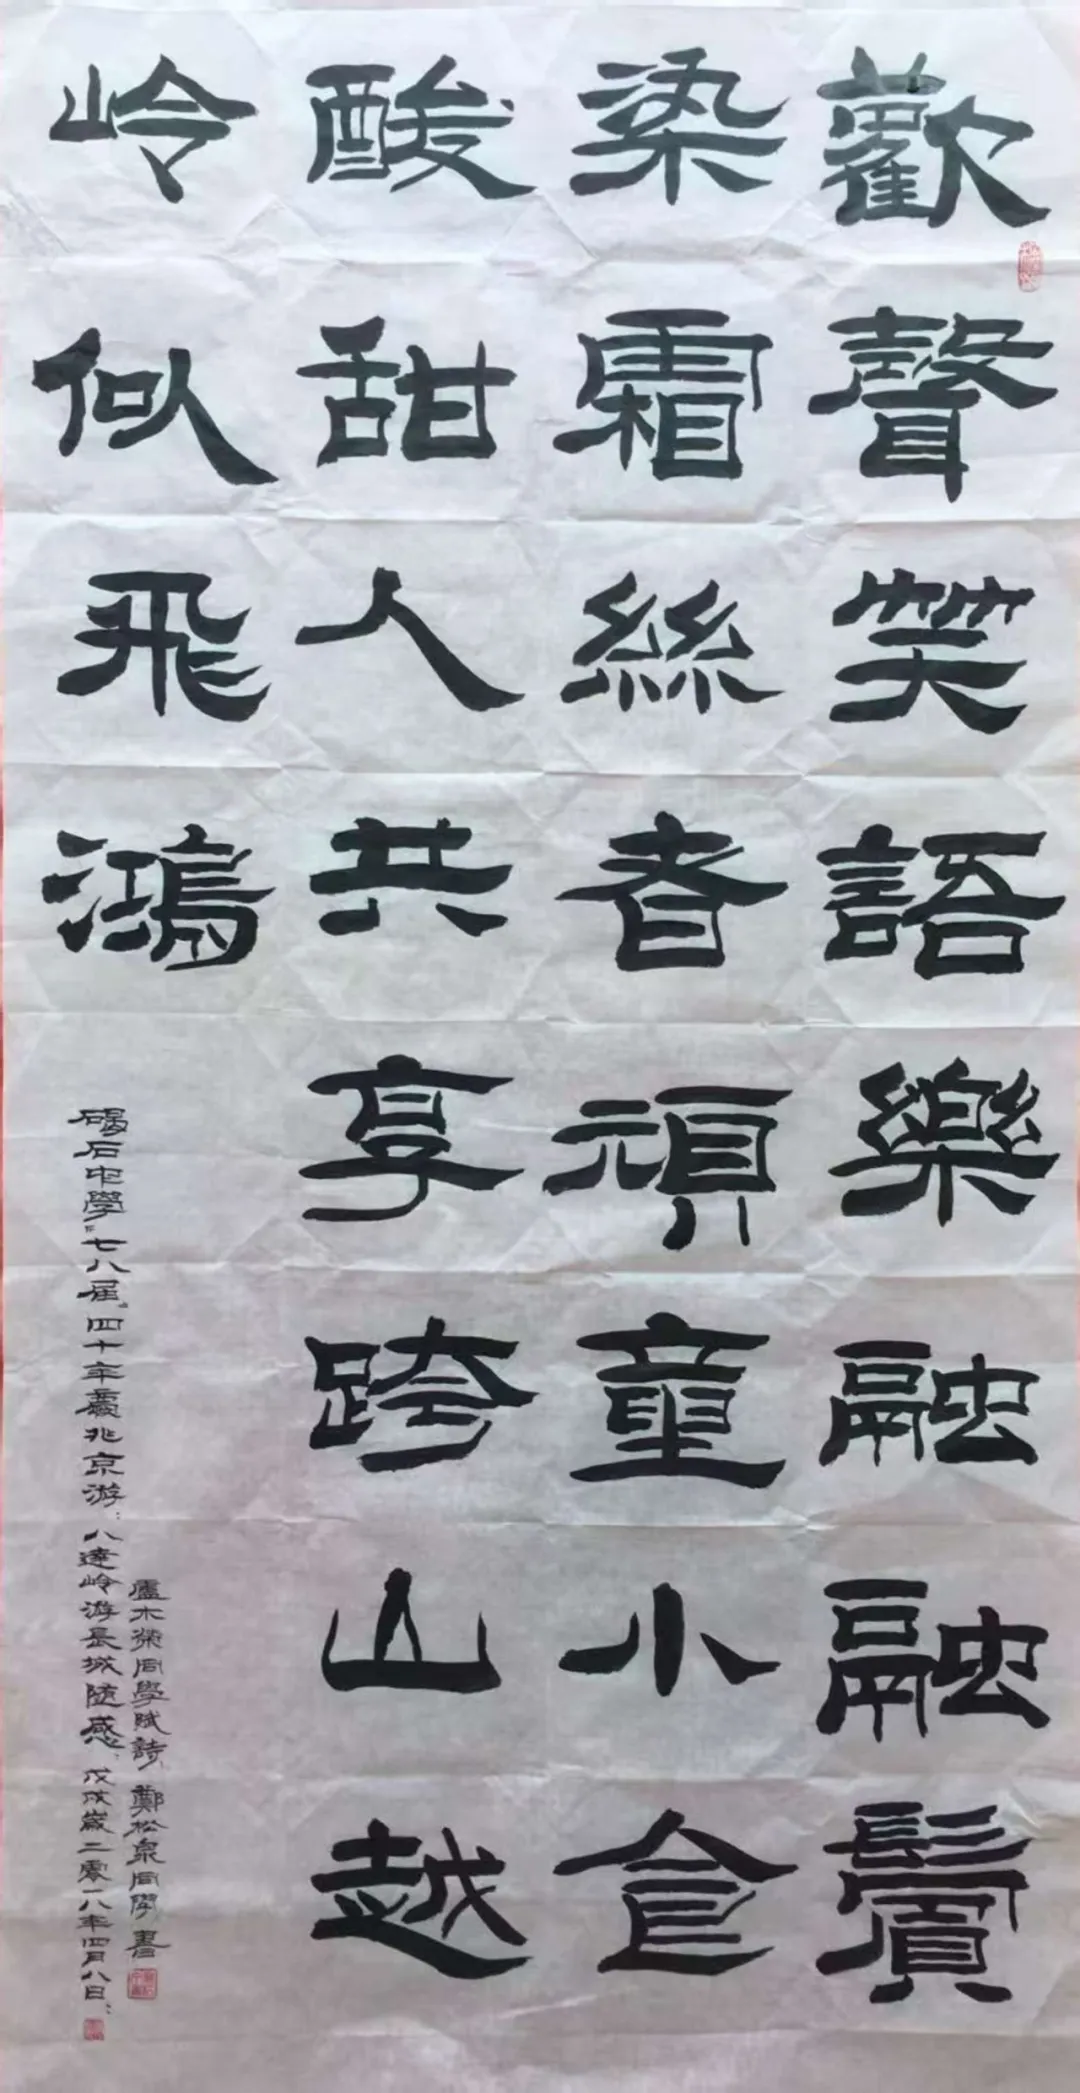 歡聲笑語樂融融鬢
染霜絲者頑童小食
酸甜人共享跨山越
岭似飛鴻
盧木榮同學賦詩，鄭松泉同學書
碣石中學“七八届”四十年慶北京游：八達岭游長城隨感；戊戌歲二零一八年四月八日；